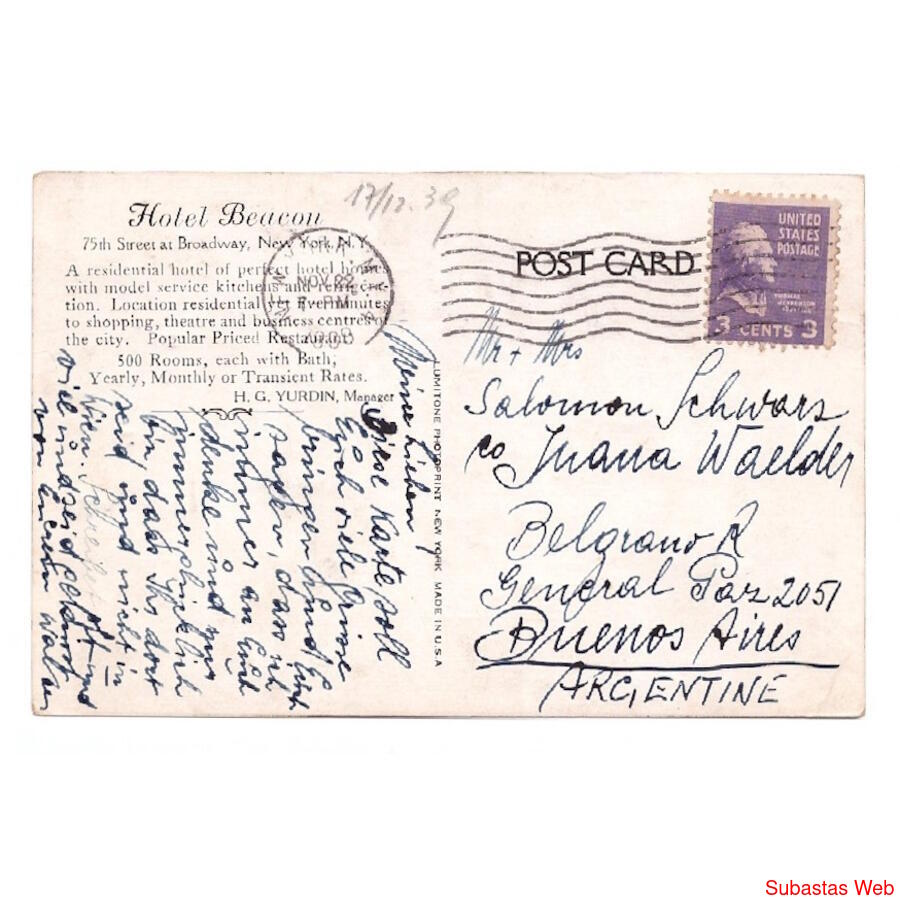 17/12.39
Hotel Beacon
75th Street at Broadway, New York, N.Y.
A residential hotel of perfect hotel homes
with model service kitchens and refrigera-
tion. Location residential yet five minutes
to shopping, theatre and business centres of
the city. Popular Priced Restaurant
500 Rooms, each with Bath;
Yearly, Monthly or Transient Rates.
H. G. YURDIN, Manager
Meine Lieben
Diese Karte soll
Euch viele Grüsse
bringen und Euch
sagen, dass ich
immer an Euch
denke und nur
bin, dass Ihr dort
seid und nicht in
Wien. Schreibet oft und
viel und seid geküsst
von Eurem
LUMITONE PHOTOPRINT NEW YORK MADE IN U.S.A
NOV 28
PM
POST CARD
UNITED
STATES
POSTAGE
THOMAS
JEFFERSON
3 CENTS 3
Mr + Mrs
Salomon Schwarz
co Juana Waelder
Belgrano R
General Paz 2051
Buenos Aires
ARGENTINE
Subastas Web